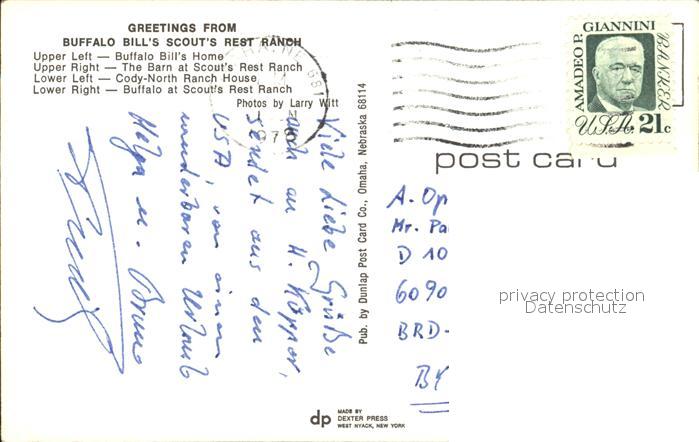 GREETINGS FROM
BUFFALO BILL'S SCOUT'S REST RANCH
Upper Left — Buffalo Bill's Home
Upper Right — The Barn at Scout's Rest Ranch
Lower Left — Cody-North Ranch House
Lower Right — Buffalo at Scout's Rest Ranch
Photos by Larry Witt
Viele Liebe Grüße
auch an H.
sendet aus den
USA, von einem
wunderbaren Urlaub
Helga u. Bruno
Pub. by Dunlap Post Card Co., Omaha, Nebraska 68114
AMADEO P. GIANNINI
BANKER
U.S.A. 21c
post card
A. Op
Mr. Pa
D 10
6090
BRD-
BY
privacy protection
Datenschutz
dp
MADE BY
DEXTER PRESS
WEST NYACK, NEW YORK